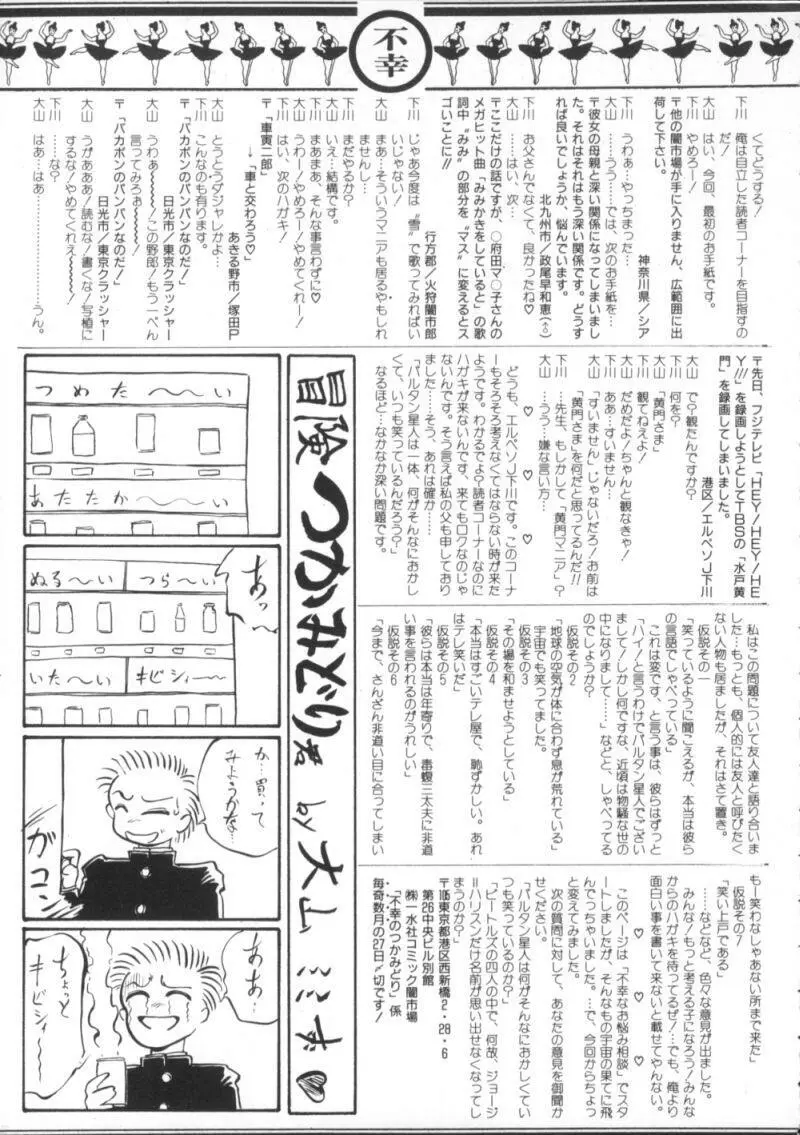 不幸
くてどうする!
下川 俺は自立した読者コーナーを目指すの
だ!
大山 はい、今回、最初のお手紙です。
下川 やめろー!
〒他の闇市場が手に入りません、広範囲に出
荷して下さい。
神奈川県/シア
下川 うわぁ…やっちまった…
大山 ……うう……では、次のお手紙を…
〒彼女の母親と深い関係になってしまいまし
た。それはそれはもう深い関係です。どうす
れば良いでしょうか、悩んでいます。
北九州市/政尾早和恵(♂)
下川 お父さんでなくて、良かったね♡
大山 ……はい、次…
〒ここだけの話ですが、○府田マ○子さんの
メガヒット曲「みみかきをしていると」の歌
詞中〝みみ〟の部分を〝マス〟に変えるとス
ゴいことに!!
行方郡/火狩闇市郎
下川 じゃあ今度は〝雪〟で歌ってみればい
いじゃない!
大山 まあ…そういうマニアも居るやもしれ
ませんし…
下川 まだやるか?
大山 いえ…結構です。
下川 まあまあ、そんな事言わずに♡
大山 うわー!やめろー!やめてくれー!
下川 はい、次のハガキ!
〒「車寅二郎」
↓「車と交わろう♡」
あきる野市/塚田P
大山 とうとうダジャレかよ…
下川 こんなのも有ります。
〒「バカボンのパンパンなのだ!」
日光市/東京クラッシャー
大山 うわぁ〜〜〜〜!この野郎!もう一ぺん
言ってみろぉ〜〜〜〜!
〒「バカボンのパンパンなのだ!」
日光市/東京クラッシャー
大山 うがぁああ!読むな!書くな!写植に
するな!やめてくれぇ〜〜〜〜!
下川 ……な?
大山 はぁ…はぁ…………………うん。
〒先日、フジテレビ「HEY!HEY!HE
Y!!!」を録画しようとしてTBSの「水戸黄
門」を録画してしまいました。
港区/エルペソJ下川
大山 で?観たんですか?
下川 何を?
大山 「黄門さま」
下川 観てねえよ!
大山 だめだよ!ちゃんと観なきゃ!
下川 ああ…すいません…
大山 「すいません」じゃないだろ!お前は
「黄門さま」を何だと思ってるんだ!!
下川 …先生、もしかして「黄門マニア」?
大山 …うう…嫌な言い方…
♡ ♡ ♡
どうも、エルペソJ下川です。このコーナ
ーもそろそろ考えなくてはならない時が来た
ようです。わかるでょ?読者コーナーなのに
ハガキが来ないんです、来てもロクなのじゃ
ないんです。そう言えば私の父も申しており
ました……そう、あれは確か……
「バルタン星人は一体、何がそんなにおかし
くて、いつも笑っているんだろう?」
なるほど…なかなか深い問題です。
私はこの問題について友人達と語り合いま
した…もっとも、個人的には友人と呼びたく
ない人物も居ましたが、それはさて置き。
仮説その一
「笑っているように聞こえるが、本当は彼ら
の言語でしゃべっている」
これは変です、と言う事は、彼らはずっと
「ハイ!と言うわけでバルタン星人でござい
まして!しかし何ですな、近頃は物騒な世の
中になりまして……」などと、しゃべってる
のでしょうか?
仮説その2
「地球の空気が体に合わず息が荒れている」
宇宙でも笑ってました。
仮説その3
「その場を和ませようとしている」
仮説その4
「本当はすごいテレ屋で、恥ずかしい。あれ
はテレ笑いだ」
仮説その5
「彼らは本当は年寄りで、毒蝮三太夫に非道
い事を言われるのがうれしい」
仮説その6
「今まで、さんざん非道い目に合ってしまい
もー笑わなしゃあない所まで来た」
仮説その7
「笑い上戸である」
……などなど、色々な意見が出ました。
みんな!もっと考える子になろう!みんな
からのハガキを待ってるぜ!でも、俺より
面白い事を書いて来ないと載せてやんない。
♡ ♡ ♡
このページは「不幸なお悩み相談」でスタ
ートしましたが、そんなもの宇宙の果てに飛
んでっちゃいました。…で、今回からちょっ
と変えてみました。
次の質問に対して、あなたの意見を御聞か
せください。
「バルタン星人は何がそんなにおかしくてい
つも笑っているのか?」
「ビートルズの四人の中で、何故、ジョージ
=ハリスンだけ名前が思い出せなくなってし
まうのか?」
〒105東京都港区西新橋2・28・6
第26中央ビル別館
㈱一水社コミック闇市場
「不幸のつかみどり」係
毎奇数月の27日〆切です!
冒険つかみどり君 by 大山ミミず♡
つめた〜〜い
あたたか〜〜い
あっ〜
ぬる〜い
つら〜い
いた〜い
キビシイ〜
か…買って
みようかな…
ガコン
ああ…
ちょっと
キビシィ〜